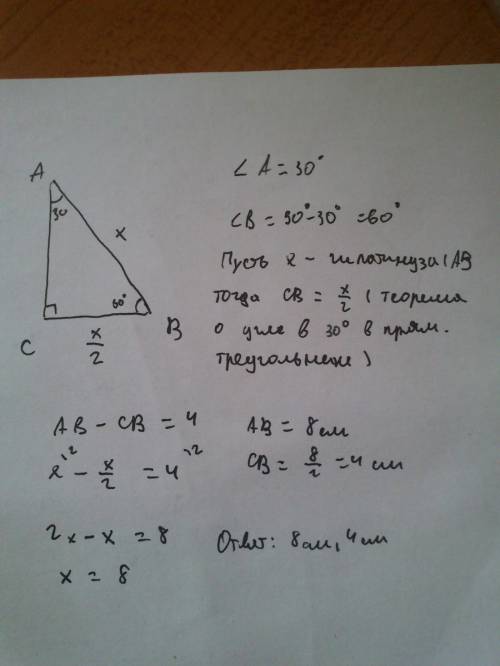 A
30
x
60°
C
x/2
B
∠ A = 30°
∠B = 90° - 30° = 60°
Пусть x - гипотинуза (AB
тогда CB = x/2 ( теорема
о угле в 30° в прям.
треугольнике )
AB - CB = 4
x^12 - x/2 = 4^12
2x - x = 8
x = 8
AB = 8 см
CB = 8/2 = 4 см
Ответ: 8 см, 4 см